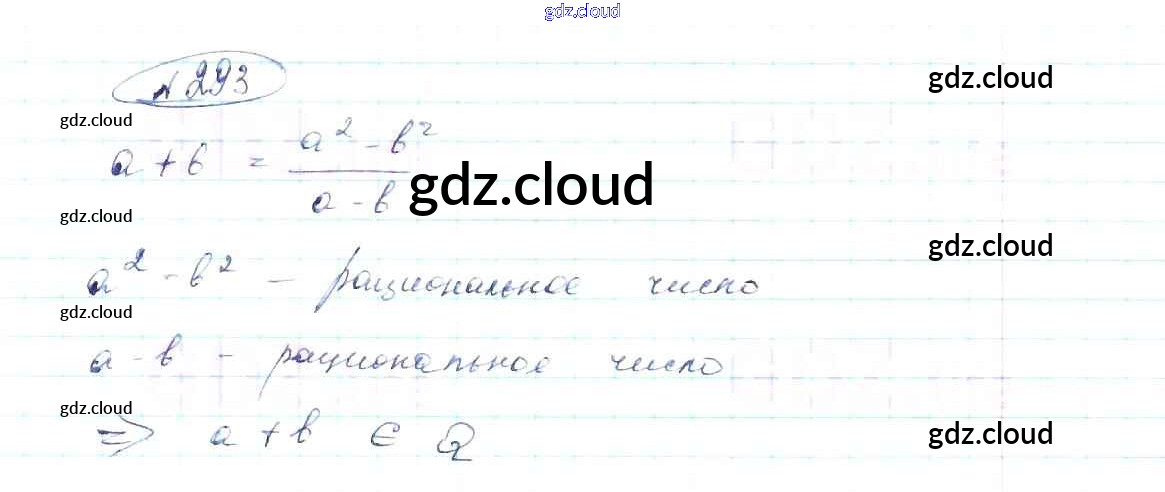 gdz.cloud
№ 293
gdz.cloud
gdz.cloud
a + b = (a² - b²) / (a - b)
gdz.cloud
gdz.cloud
gdz.cloud
a² - b² – рациональное число
gdz.cloud
a - b – рациональное число
gdz.cloud
⇒ a + b ∈ Q
gdz.cloud